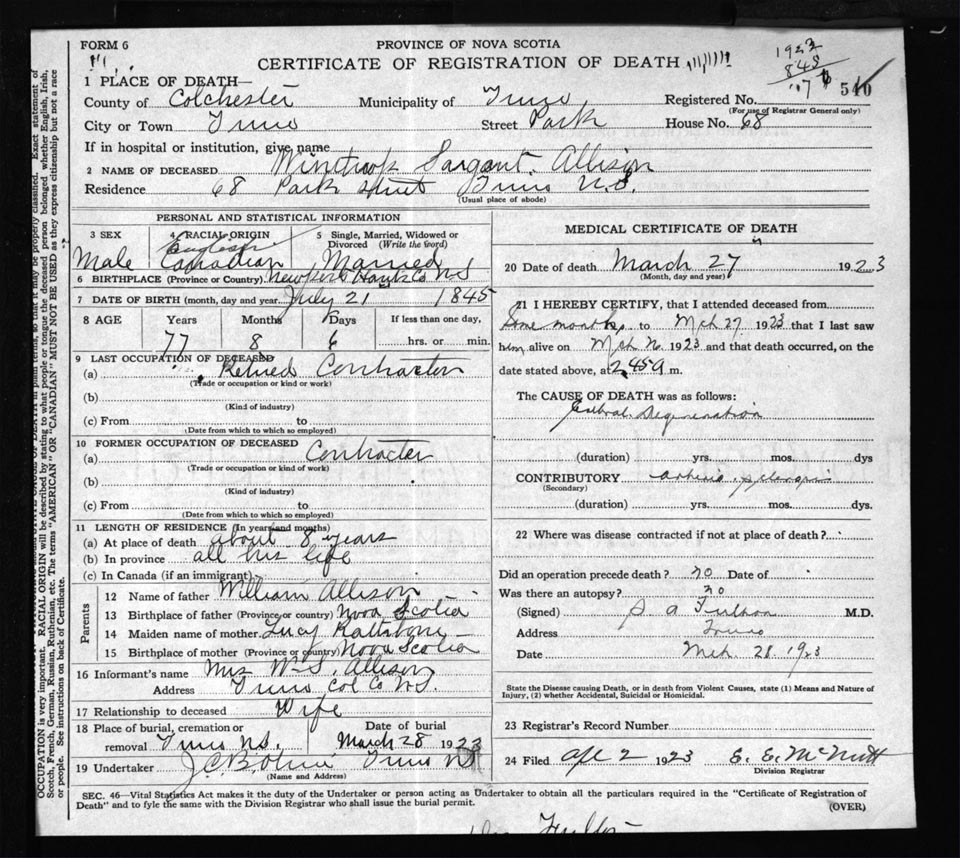 FORM 6
PROVINCE OF NOVA SCOTIA
CERTIFICATE OF REGISTRATION OF DEATH
1923
848
540
1 PLACE OF DEATH—
County of Colchester Municipality of Truro Registered No.
(For use of Registrar General only)
City or Town Truro Street Park House No. 68
If in hospital or institution, give name
2 NAME OF DECEASED Winthrop Sargant Allison
Residence 68 Park Street Truro N.S.
(Usual place of abode)
PERSONAL AND STATISTICAL INFORMATION
3 SEX 4 RACIAL ORIGIN 5 Single, Married, Widowed or Divorced (Write the word)
English
Male Canadian Married
6 BIRTHPLACE (Province or Country) Newport Hants Co NS
7 DATE OF BIRTH (month, day and year) July 21 1845
8 AGE Years Months Days If less than one day,
77 8 6 hrs. or min.
9 LAST OCCUPATION OF DECEASED
(a) Retired Contractor
(Trade or occupation or kind or work)
(b)
(Kind of industry)
(c) From to
(Date from which to which so employed)
10 FORMER OCCUPATION OF DECEASED
(a) Contracter
(Trade or occupation or kind of work)
(b)
(Kind of industry)
(c) From to
(Date from which to which so employed)
11 LENGTH OF RESIDENCE (In years and months)
(a) At place of death about 8 years
(b) In province all his life
(c) In Canada (if an immigrant)
Parents
12 Name of father William Allison
13 Birthplace of father (Province or country) Nova Scotia
14 Maiden name of mother Lucy
15 Birthplace of mother (Province or country) Nova Scotia
16 Informant's name Mrs W S. Allison
Address Truro Col Co N.S.
17 Relationship to deceased Wife
18 Place of burial, cremation or removal Truro NS. Date of burial March 28 1923
19 Undertaker J.C.B. Truro NS
(Name and Address)
MEDICAL CERTIFICATE OF DEATH
20 Date of death March 27 1923
(Month, day and year)
21 I HEREBY CERTIFY, that I attended deceased from
Some months to Mch 27 1923 that I last saw
him alive on Mch 26 1923 and that death occurred, on the
date stated above, at 2.45 a m.
The CAUSE OF DEATH was as follows:
Cerebral Degeneration
(duration) yrs. mos. dys
CONTRIBUTORY
(Secondary)
(duration) yrs. mos. dys.
22 Where was disease contracted if not at place of death?
Did an operation precede death? no Date of
Was there an autopsy? no
(Signed) S A Fulton M.D.
Address Truro
Date Mch. 28. 1923
State the Disease causing Death, or in death from Violent Causes, state (1) Means and Nature of
Injury, (2) whether Accidental, Suicidal or Homicidal.
23 Registrar's Record Number
24 Filed Apl 2 1923 E. E. McNutt
Division Registrar
SEC. 46—Vital Statistics Act makes it the duty of the Undertaker or person acting as Undertaker to obtain all the particulars required in the "Certificate of Registration of
Death" and to fyle the same with the Division Registrar who shall issue the burial permit.
(OVER)
OCCUPATION is very important. RACIAL ORIGIN will be described by stating to what people or tongue the deceased person belonged whether English, Irish,
Scotch, French, German, Russian, Ruthenian, etc. The terms "AMERICAN" OR "CANADIAN" MUST NOT BE USED as they express citizenship but not a race
or people. See instructions on back of Certificate.